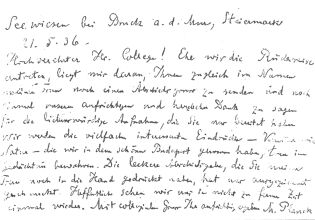 Seewiesen bei Bruck a. d. Mur, Steiermark
21. 5. 36.
Hochverehrter Hr. College! Ehe wir die Rückreise
antreten, liegt mir daran, Ihnen zugleich im Namen
meiner Frau noch einen Abschiedsgruss zu senden und noch
einmal unsern aufrichtigen und herzlichen Dank zu sagen
für die liebenswürdige Aufnahme, die Sie uns bereitet haben.
Wir werden die vielfach interessanten Eindrücke
die wir in dem schönen Budapest gewonnen haben, treu im
Gedächtnis bewahren. Die leckere die Sie meiner
Frau noch in die Hand gedrückt haben, hat uns ausgezeichnet
geschmeckt. Hoffentlich sehen wir uns in nicht zu ferner Zeit
einmal wieder. Mit collegialem Gruss Ihr aufrichtig ergebener M. Planck